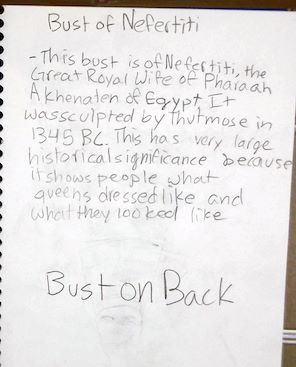 Bust of Nefertiti
-This bust is of Nefertiti, the
Great Royal Wife of Pharaah
Akhenaten of Egypt It
wassculpted by thutmose in
1345 BC. This has very large
historical significance because
it shows people what
queens dressed like and
what they looked like
Bust on Back